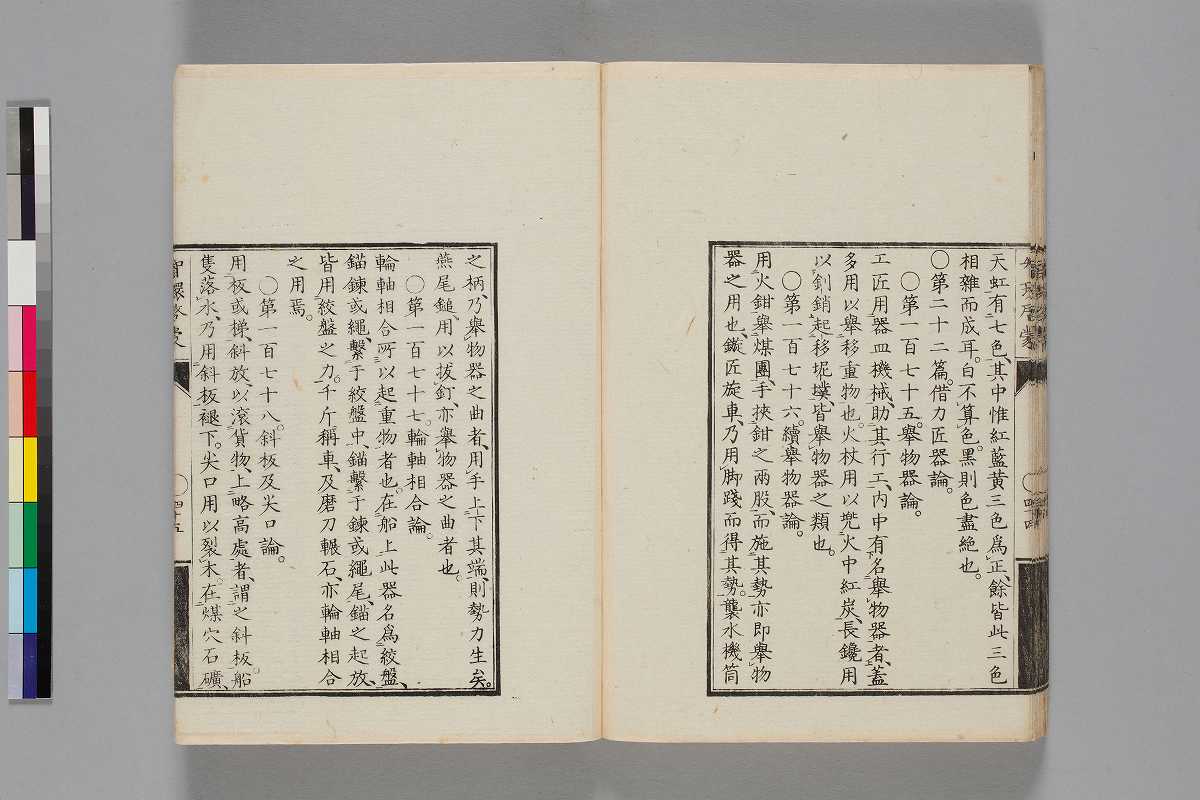 天虹有七色、其中惟紅藍黃三色爲正、餘皆此三色
相雜而成耳。白不算色。黑則色盡絕也。
〇第二十二篇。借力匠器論。
〇第一百七十五。舉物器論。
工匠用器皿機械、助其行工、內中有名舉物器者、蓋
多用以舉移重物也。火杖用以兠火中紅炭、長鑱用
以釗銷起移坭墣、皆舉物器之類也。
〇第一百七十六。續舉物器論。
用火鉗舉煤團、手挾鉗之兩股、而施其勢亦即舉物
器之用也、鏇匠旋車、乃用脚踐而得其勢。襲水機筒
之柄、乃舉物器之曲者、用手上下其端、則勢力生矣。
燕尾鎚、用以拔釘、亦舉物器之曲者也。
〇第一百七十七。輪軸相合論。
輪軸相合所以起重物者也。在船上此器名爲絞盤、
錨鍊或繩、繫于絞盤中、錨繫于鍊或繩尾、錨之起放、
皆用絞盤之力。千斤稱車、及磨刀輾石、亦輪軸相合
之用焉。
〇第一百七十八。斜板及尖口論。
用板或梯、斜放、以滾貨物、上略高處者、謂之斜板。船
隻落水、乃用斜板褪下。尖口用以裂木。在煤穴石礦、
智環啓蒙
〇四十五